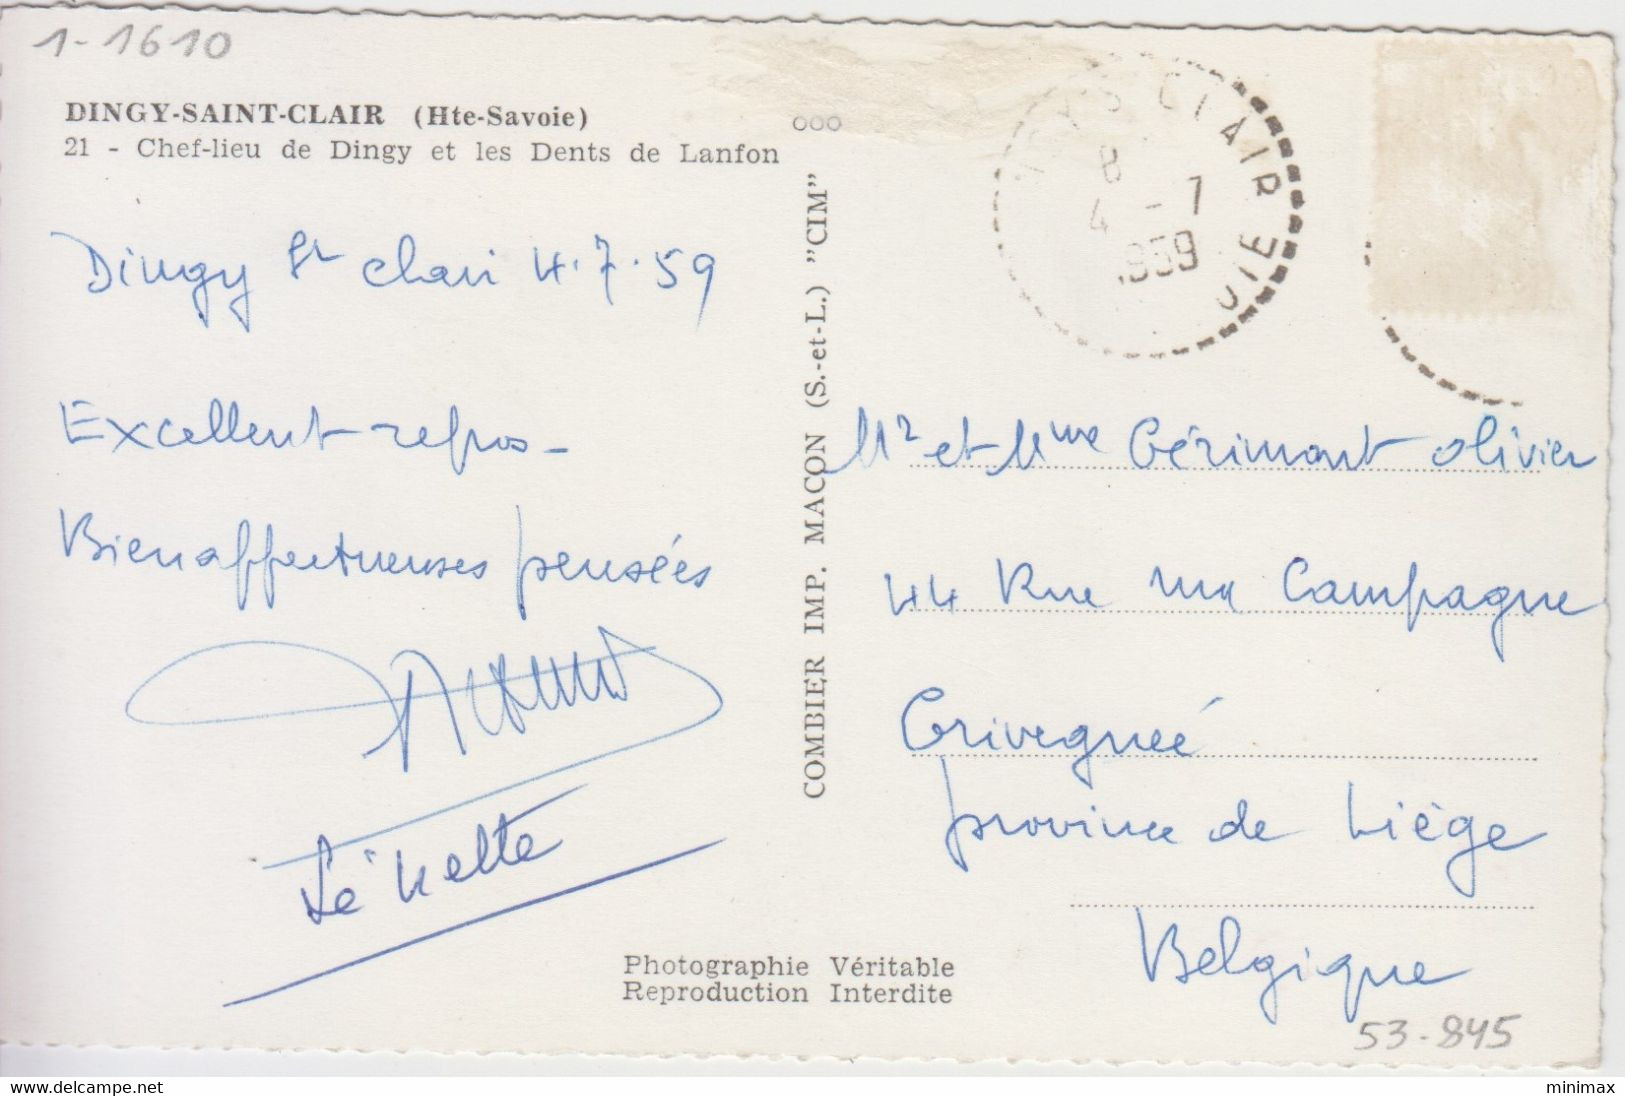 1-1610
DINGY-SAINT-CLAIR (Hte-Savoie)
21 - Chef-lieu de Dingy et les Dents de Lanfon
Dingy St Clair 4.7.59
Excellent repos -
Bien affectueuses pensées
COMBIER IMP. MACON (S.-et-L.) "CIM"
ooo
S CLAIR
8
4 - 7
1959
OIE
Mr et Mme Gérimont Olivier
44 Rue ma Campagne
Grivegnée
province de Liège
Belgique
Photographie Véritable
Reproduction Interdite
53-845
www.delcampe.net
minimax